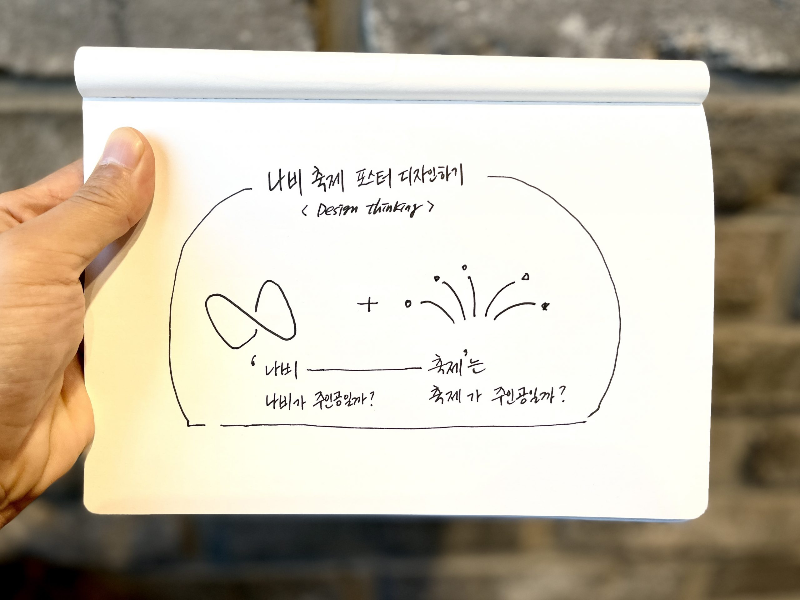 나비 축제 포스터 디자인하기
< Design thinking >
+
‘나비 축제’는
나비가 주인공일까?
축제가 주인공일까?